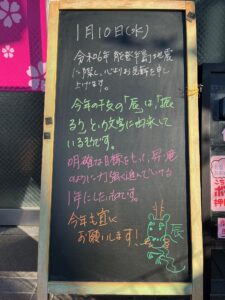 1月10日(水)
令和6年 能登半島地震
に際し、心よりお見舞を申し
上げます。
今年の干支の「辰」は、「振
るう」という文字に由来して
いるそうです。
明確な目標をもち、昇竜
のように力強く進んでいける
1年にしたいですね。
今年も宜しく
お願いします!
辰